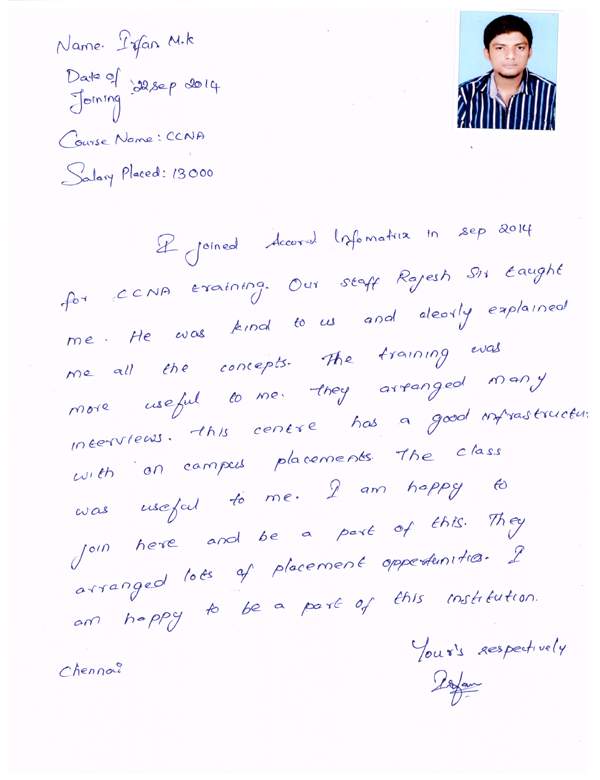 Name. Irfan M.K
Date of
Joining : 22 sep 2014
Course Name : CCNA
Salary Placed : 13000
I joined Accord Infomatrix in sep 2014
for CCNA training. Our staff Rajesh Sir taught
me. He was kind to us and clearly explained
me all the concepts. The training was
more useful to me. They arranged many
interviews. This centre has a good infrastructu
with on campus placements The class
was useful to me. I am happy to
join here and be a part of this. They
arranged lots of placement oppertunities. I
am happy to be a part of this institution.
Your's respectively
Chennai
Irfan